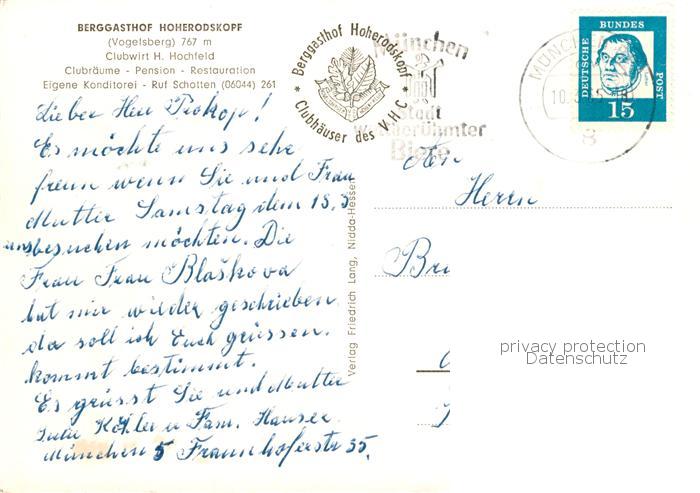 BERGGASTHOF HOHERODSKOPF
(Vogelsberg) 767 m
Clubwirt H. Hochfeld
Clubräume - Pension - Restauration
Eigene Konditorei - Ruf Schotten (06044) 261
* Berggasthof Hoherodskopf *
Clubhäuser des V.H.C.
München
Stadt
Weltberühmter
Biere
DEUTSCHE BUNDES POST
15
Lieber Herr Prokop!
Es möchte uns sehr
freun wenn Sie und Frau
Mutter Samstag dem 18.
uns besuchen möchten. Die
Frau Frau Blaškova
hat mir wieder geschrieben
da soll ich Euch grüssen.
kommt bestimmt.
Es grüsst Sie und Mutter
u Fam. Hauser
München 5 Fraunhoferstr 35.
An
Herrn
Verlag Friedrich Lang, Nidda-Hessen
privacy protection
Datenschutz